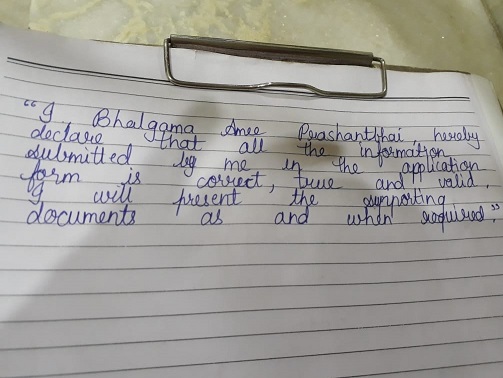 "I Bhalgama Amee Prashantbhai, hereby
declare that all the information
submitted by me in the application
form is correct, true and valid.
I will present the supporting
documents as and when required."